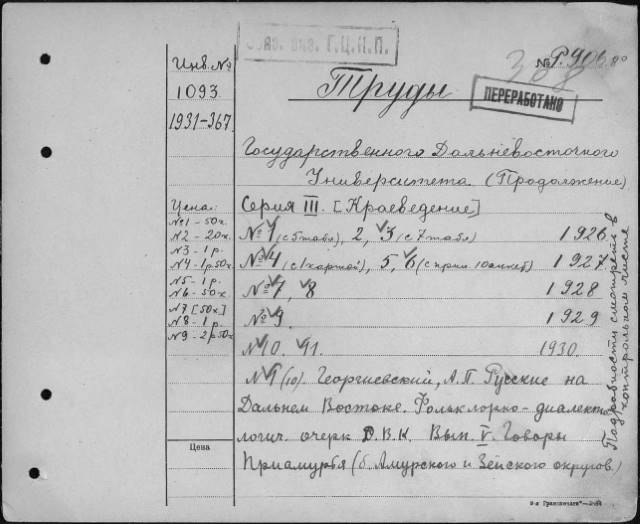 Обяз. экз. Г.Ц.К.П.
№ Р.906.80
308
Труды
ПЕРЕРАБОТАНО
Инв. №
1093
1931-367
Государственного Дальневосточного
Университета (Продолжение)
Серия III. [Краеведение]
№ 1 (с 5 табл), 2, 3 (с 7 табл) 1926
№ 4 (с 1 картой), 5, 6 (с прил. 1 1927
№ 7, 8 1928
№ 9. 1929
№ 10. 11. 1930.
№ 9 (10). Георгиевский, А.П. Русские на
Дальнем Востоке. Фольклорно-диалекто
логич. очерк Д.В.К. Вып. V. Говоры
Приамурья (б. Амурского и Зейского округов.)
Цена:
№1 - 50к.
№2 - 20к.
№3 - 1р.
№4 - 1р50к.
№5 - 1р.
№6 - 50к.
№7 [50к]
№8 - 1р.
№9 - 2р50к
Цена
Подробности смотреть в
контрольном листе